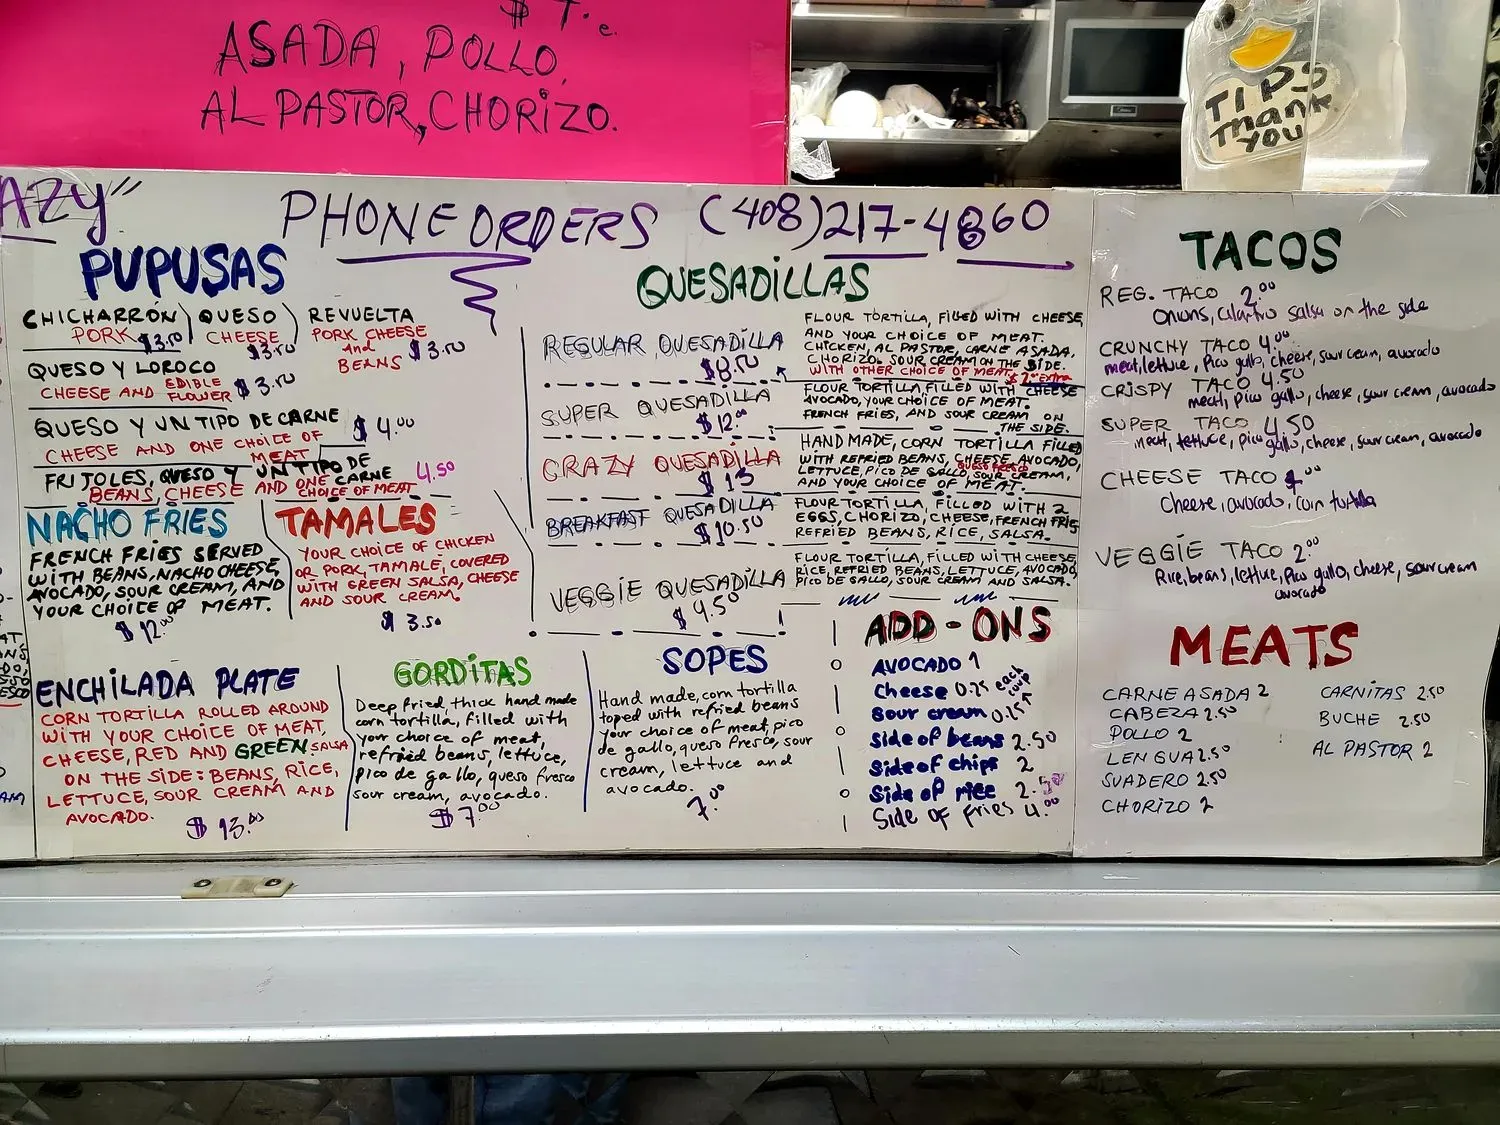 ASADA, POLLO,
AL PASTOR, CHORIZO.
TIPS
Thank
YOU
AZY"
PHONE ORDERS (408)217-4860
PUPUSAS
CHICHARRÓN
PORK $3.50
QUESO
CHEESE
$3.50
REVUELTA
PORK CHEESE
and
BEANS $3.50
QUESO Y LOROCO
CHEESE AND EDIBLE FLOWER $3.50
QUESO Y UN TIPO DE CARNE $4.00
CHEESE AND ONE CHOICE OF
MEAT
FRIJOLES, QUESO Y UN TIPO DE CARNE 4.50
BEANS, CHEESE AND ONE CHOICE OF MEAT
NACHO FRIES
FRENCH FRIES SERVED
WITH BEANS, NACHO CHEESE,
AVOCADO, SOUR CREAM, AND
YOUR CHOICE OF MEAT.
$12.00
TAMALES
YOUR CHOICE OF CHICKEN
OR PORK, TAMALE, COVERED
WITH GREEN SALSA, CHEESE
AND SOUR CREAM.
$3.50
ENCHILADA PLATE
CORN TORTILLA ROLLED AROUND
WITH YOUR CHOICE OF MEAT,
CHEESE, RED AND GREEN SALSA
ON THE SIDE: BEANS, RICE,
LETTUCE, SOUR CREAM AND
AVOCADO.
$13.00
GORDITAS
Deep fried, thick hand made
corn tortilla, filled with
your choice of meat,
refried beans, lettuce,
pico de gallo, queso fresco
sour cream, avocado.
$7.00
SOPES
Hand made, corn tortilla
toped with refried beans
your choice of meat, pico
de gallo, queso fresco, sour
cream, lettuce and
avocado.
7.00
QUESADILLAS
REGULAR QUESADILLA
$8.50
FLOUR TORTILLA, FILLED WITH CHEESE,
AND YOUR CHOICE OF MEAT.
CHICKEN, AL PASTOR, CARNE ASADA,
CHORIZO. SOUR CREAM ON THE SIDE.
WITH OTHER CHOICE OF MEAT $2.00 EXTRA
SUPER QUESADILLA
$12.00
FLOUR TORTILLA, FILLED WITH CHEESE
AVOCADO, YOUR CHOICE OF MEAT.
FRENCH FRIES, AND SOUR CREAM ON
THE SIDE.
CRAZY QUESADILLA
$13
HAND MADE, CORN TORTILLA FILLED
WITH REFRIED BEANS, CHEESE, AVOCADO,
LETTUCE, PICO DE GALLO, QUESO FRESCO, SOUR CREAM,
AND YOUR CHOICE OF MEAT.
BREAKFAST QUESADILLA
$10.50
FLOUR TORTILLA, FILLED WITH 2
EGGS, CHORIZO, CHEESE, FRENCH FRIES
REFRIED BEANS, RICE, SALSA.
VEGGIE QUESADILLA
$9.50
FLOUR TORTILLA, FILLED WITH CHEESE,
RICE, REFRIED BEANS, LETTUCE, AVOCADO,
PICO DE GALLO, SOUR CREAM AND SALSA.
ADD-ONS
AVOCADO 1
Cheese 0.75 each
Sour cream 0.75 cup
Side of beans 2.50
Side of chips 2
Side of rice 2.50
Side of fries 4.00
TACOS
REG. TACO 2.00
Onions, cilantro salsa on the side
CRUNCHY TACO 4.00
meat, lettuce, pico gallo, cheese, sour cream, avocado
CRISPY TACO 4.50
meat, pico gallo, cheese, sour cream, avocado
SUPER TACO 4.50
meat, lettuce, pico gallo, cheese, sour cream, avocado
CHEESE TACO 4.00
Cheese, avocado, corn tortilla
VEGGIE TACO 2.00
Rice, beans, lettuce, pico gallo, cheese, sour cream
avocado
MEATS
CARNE ASADA 2
CABEZA 2.50
POLLO 2
LENGUA 2.50
SUADERO 2.50
CHORIZO 2
CARNITAS 2.50
BUCHE 2.50
AL PASTOR 2